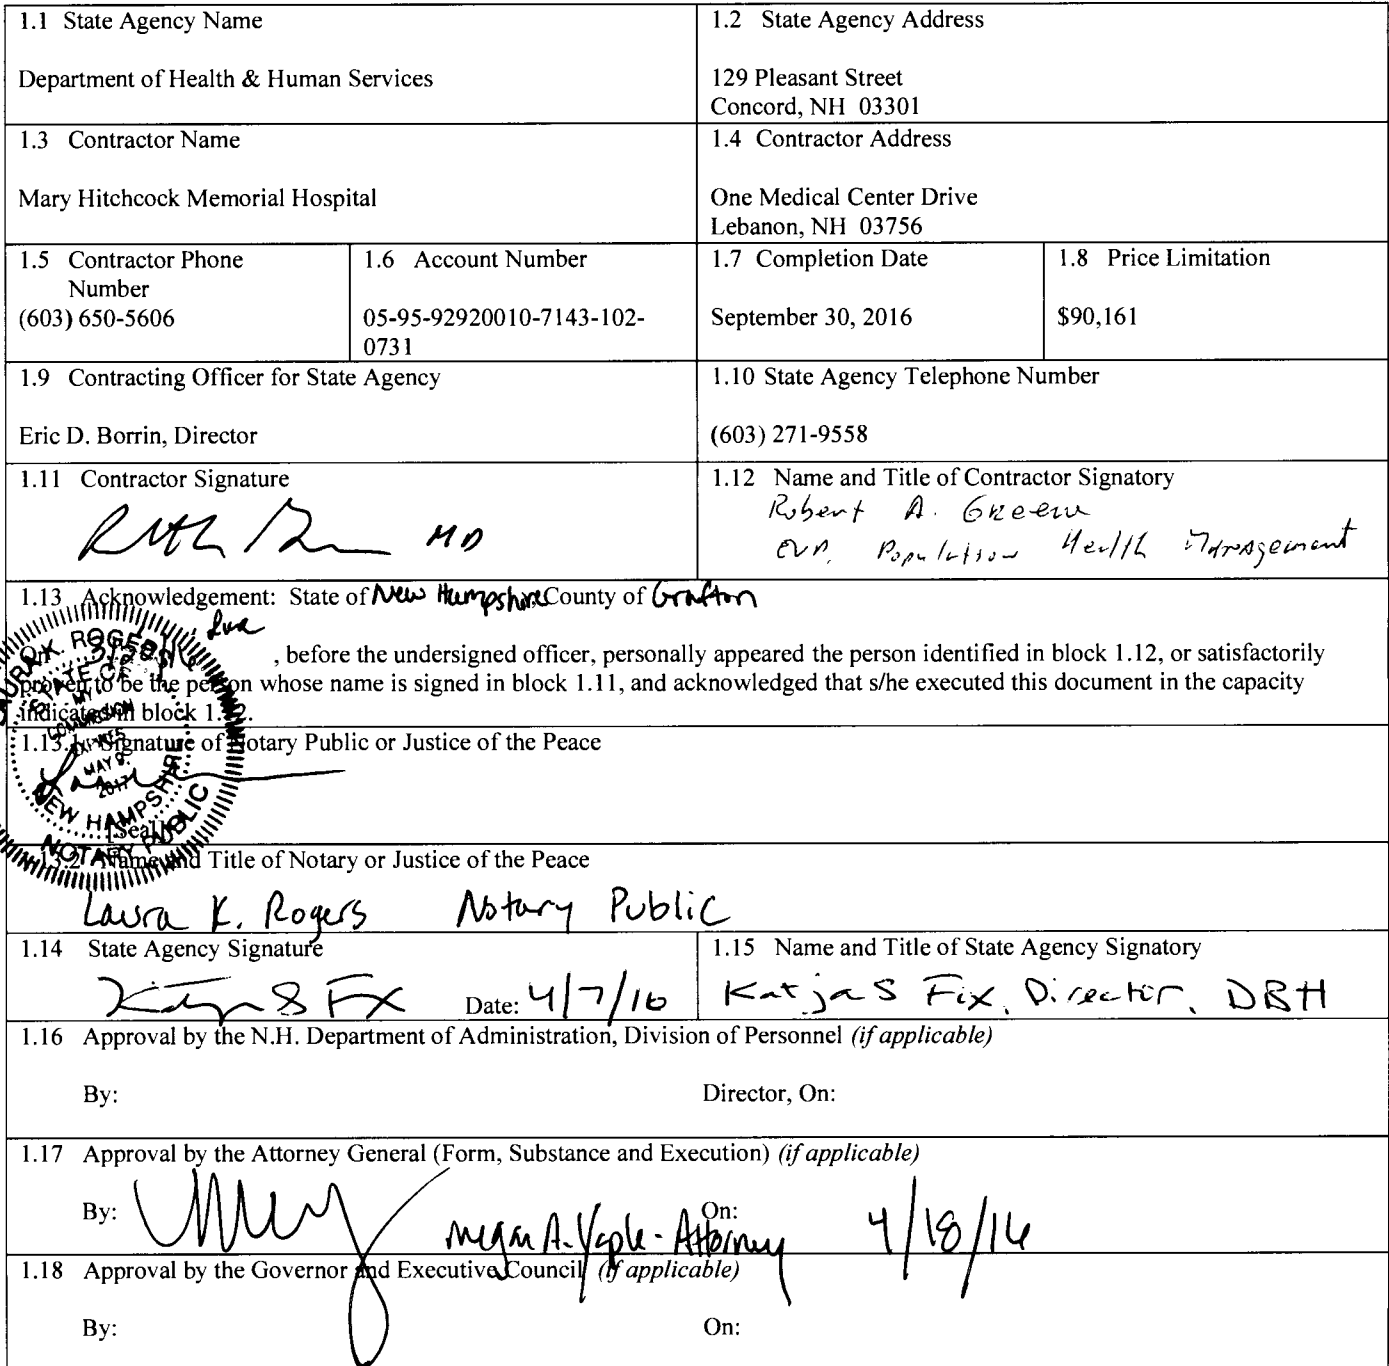 1.1 State Agency Name
Department of Health & Human Services
1.2 State Agency Address
129 Pleasant Street
Concord, NH 03301
1.3 Contractor Name
Mary Hitchcock Memorial Hospital
1.4 Contractor Address
One Medical Center Drive
Lebanon, NH 03756
1.5 Contractor Phone
Number
(603) 650-5606
1.6 Account Number
05-95-92920010-7143-102-
0731
1.7 Completion Date
September 30, 2016
1.8 Price Limitation
$90,161
1.9 Contracting Officer for State Agency
Eric D. Borrin, Director
1.10 State Agency Telephone Number
(603) 271-9558
1.11 Contractor Signature
MD
1.12 Name and Title of Contractor Signatory
Robert A. Greene
EVP, Population Health Management
1.13 Acknowledgement: State of New Hampshire, County of Grafton
On , before the undersigned officer, personally appeared the person identified in block 1.12, or satisfactorily
proven to be the person whose name is signed in block 1.11, and acknowledged that s/he executed this document in the capacity
indicated in block 1.12.
LAURA K. ROGERS
STATE OF
MY
COMMISSION
EXPIRES
MAY 9,
2017
NEW HAMPSHIRE
NOTARY PUBLIC
1.13.1 Signature of Notary Public or Justice of the Peace
[Seal]
1.13.2 Name and Title of Notary or Justice of the Peace
Laura K. Rogers Notary Public
1.14 State Agency Signature
Date: 4/7/16
1.15 Name and Title of State Agency Signatory
Katja S Fox, Director, DBH
1.16 Approval by the N.H. Department of Administration, Division of Personnel (if applicable)
By: Director, On:
1.17 Approval by the Attorney General (Form, Substance and Execution) (if applicable)
By: On:
Megan A. Yaple - Attorney 4/18/16
1.18 Approval by the Governor and Executive Council (if applicable)
By: On: